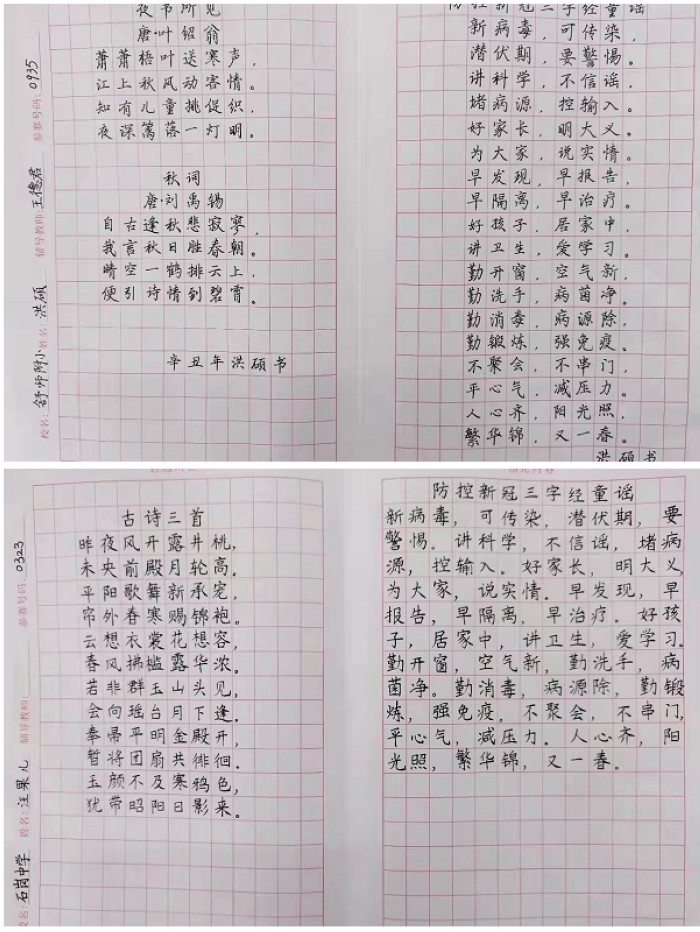 夜书所见
唐·叶绍翁
萧萧梧叶送寒声，
江上秋风动客情。
知有儿童挑促织，
夜深篱落一灯明。
秋词
唐·刘禹锡
自古逢秋悲寂寥，
我言秋日胜春朝。
晴空一鹤排云上，
便引诗情到碧霄。
辛丑年洪硕书
校名：舒师附小 姓名：洪硕 辅导教师：王德君 参赛号码：0935
防控新冠三字经童谣
新病毒，可传染，
潜伏期，要警惕。
讲科学，不信谣，
堵病源，控输入。
好家长，明大义。
为大家，说实情。
早发现，早报告，
早隔离，早治疗。
好孩子，居家中，
讲卫生，爱学习。
勤开窗，空气新，
勤洗手，病菌净。
勤消毒，病源除，
勤锻炼，强免疫。
不聚会，不串门，
平心气，减压力。
人心齐，阳光照，
繁华锦，又一春。
洪硕书
古诗三首
昨夜风开露井桃，
未央前殿月轮高。
平阳歌舞新承宠，
帘外春寒赐锦袍。
云想衣裳花想容，
春风拂槛露华浓。
若非群玉山头见，
会向瑶台月下逢。
奉帚平明金殿开，
暂将团扇共徘徊。
玉颜不及寒鸦色，
犹带昭阳日影来。
校名：石岗中学 姓名：汪果儿 辅导教师： 参赛号码：0323
防控新冠三字经童谣
新病毒，可传染，潜伏期，要
警惕。讲科学，不信谣，堵病
源，控输入。好家长，明大义，
为大家，说实情。早发现，早
报告，早隔离，早治疗。好孩
子，居家中，讲卫生，爱学习。
勤开窗，空气新，勤洗手，病
菌净。勤消毒，病源除，勤锻
炼，强免疫，不聚会，不串门，
平心气，减压力。人心齐，阳
光照，繁华锦，又一春。